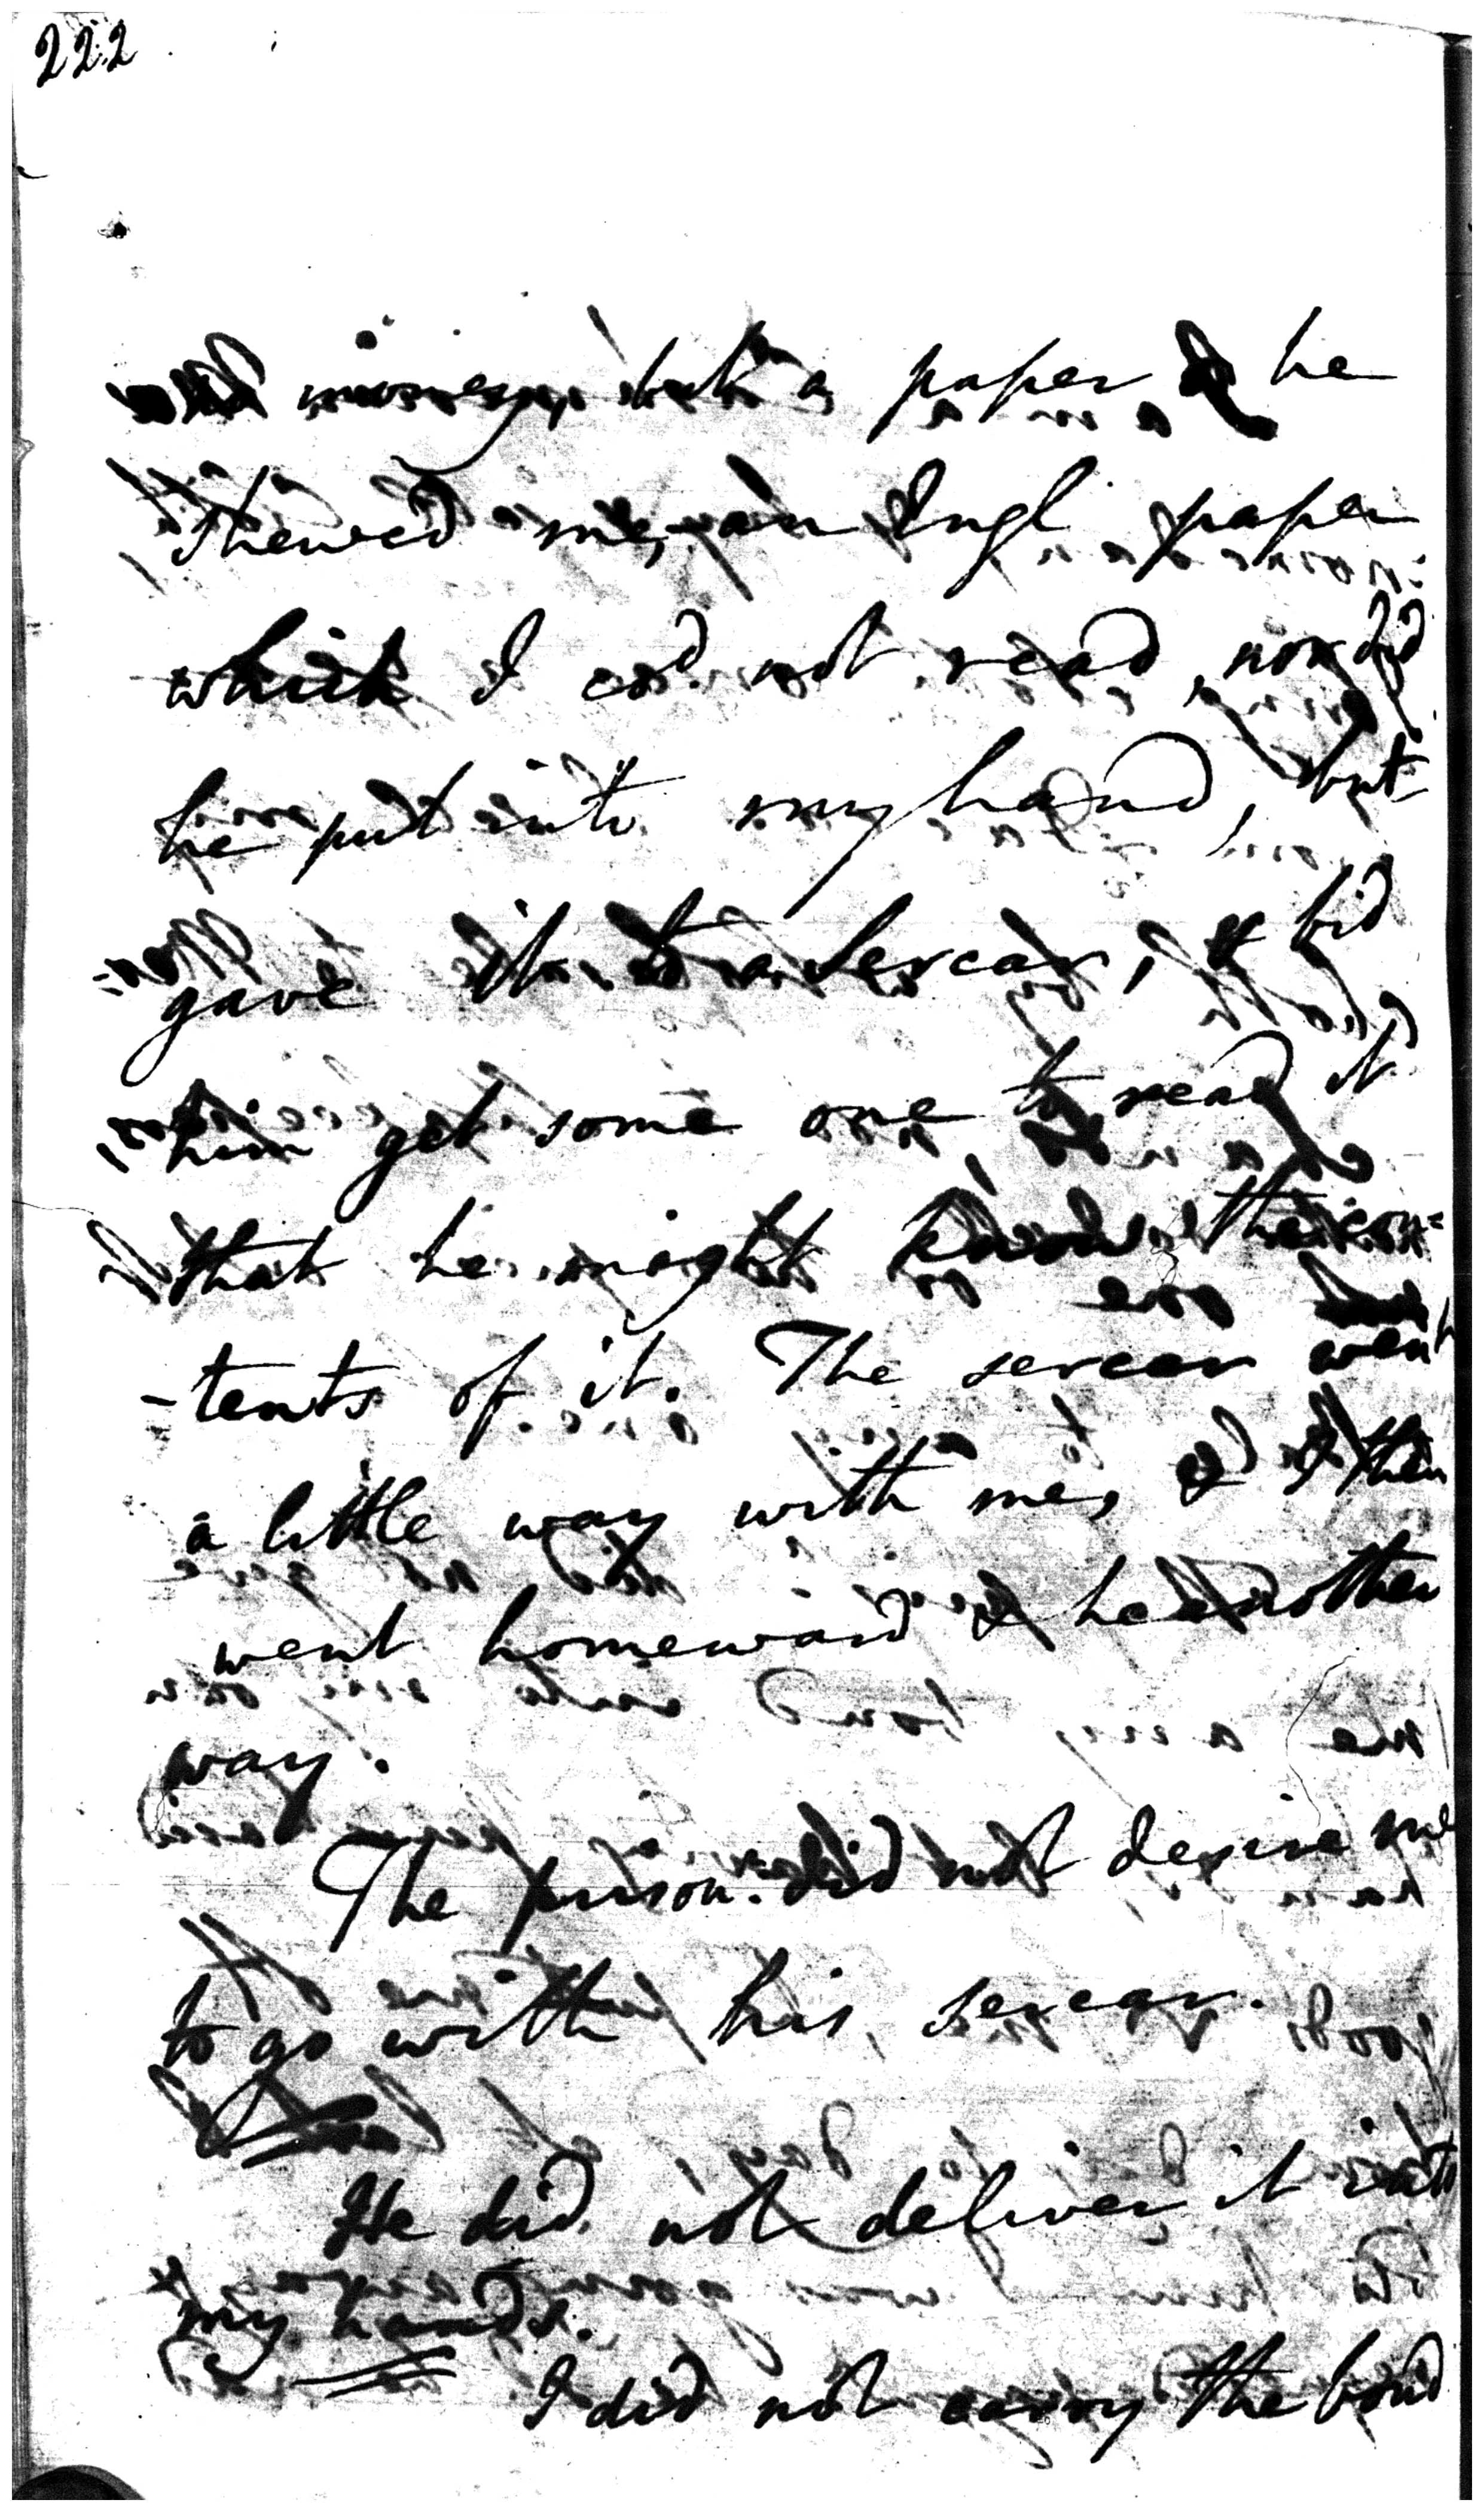 222
money, but a paper & he
shewed me, an Engl paper
which I cod not read, nor did
he put into my hand, but
gave it to a sercar, & bid
him get some one to read it
that he might know the con=
-tents of it. The sercar went
a little way with me, & I then
went homeward & he another
way.
The prison. did not desire me
to go with his sercar.
He did not deliver it into
my hands.
I did not carry the bond